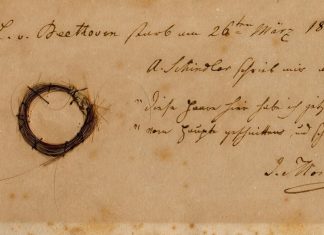 L. v. Beethoven starb am 26ten März 18
A. Schindler schrieb mir
"diese Haare hier habe ich
vom Haupte geschnitten, und